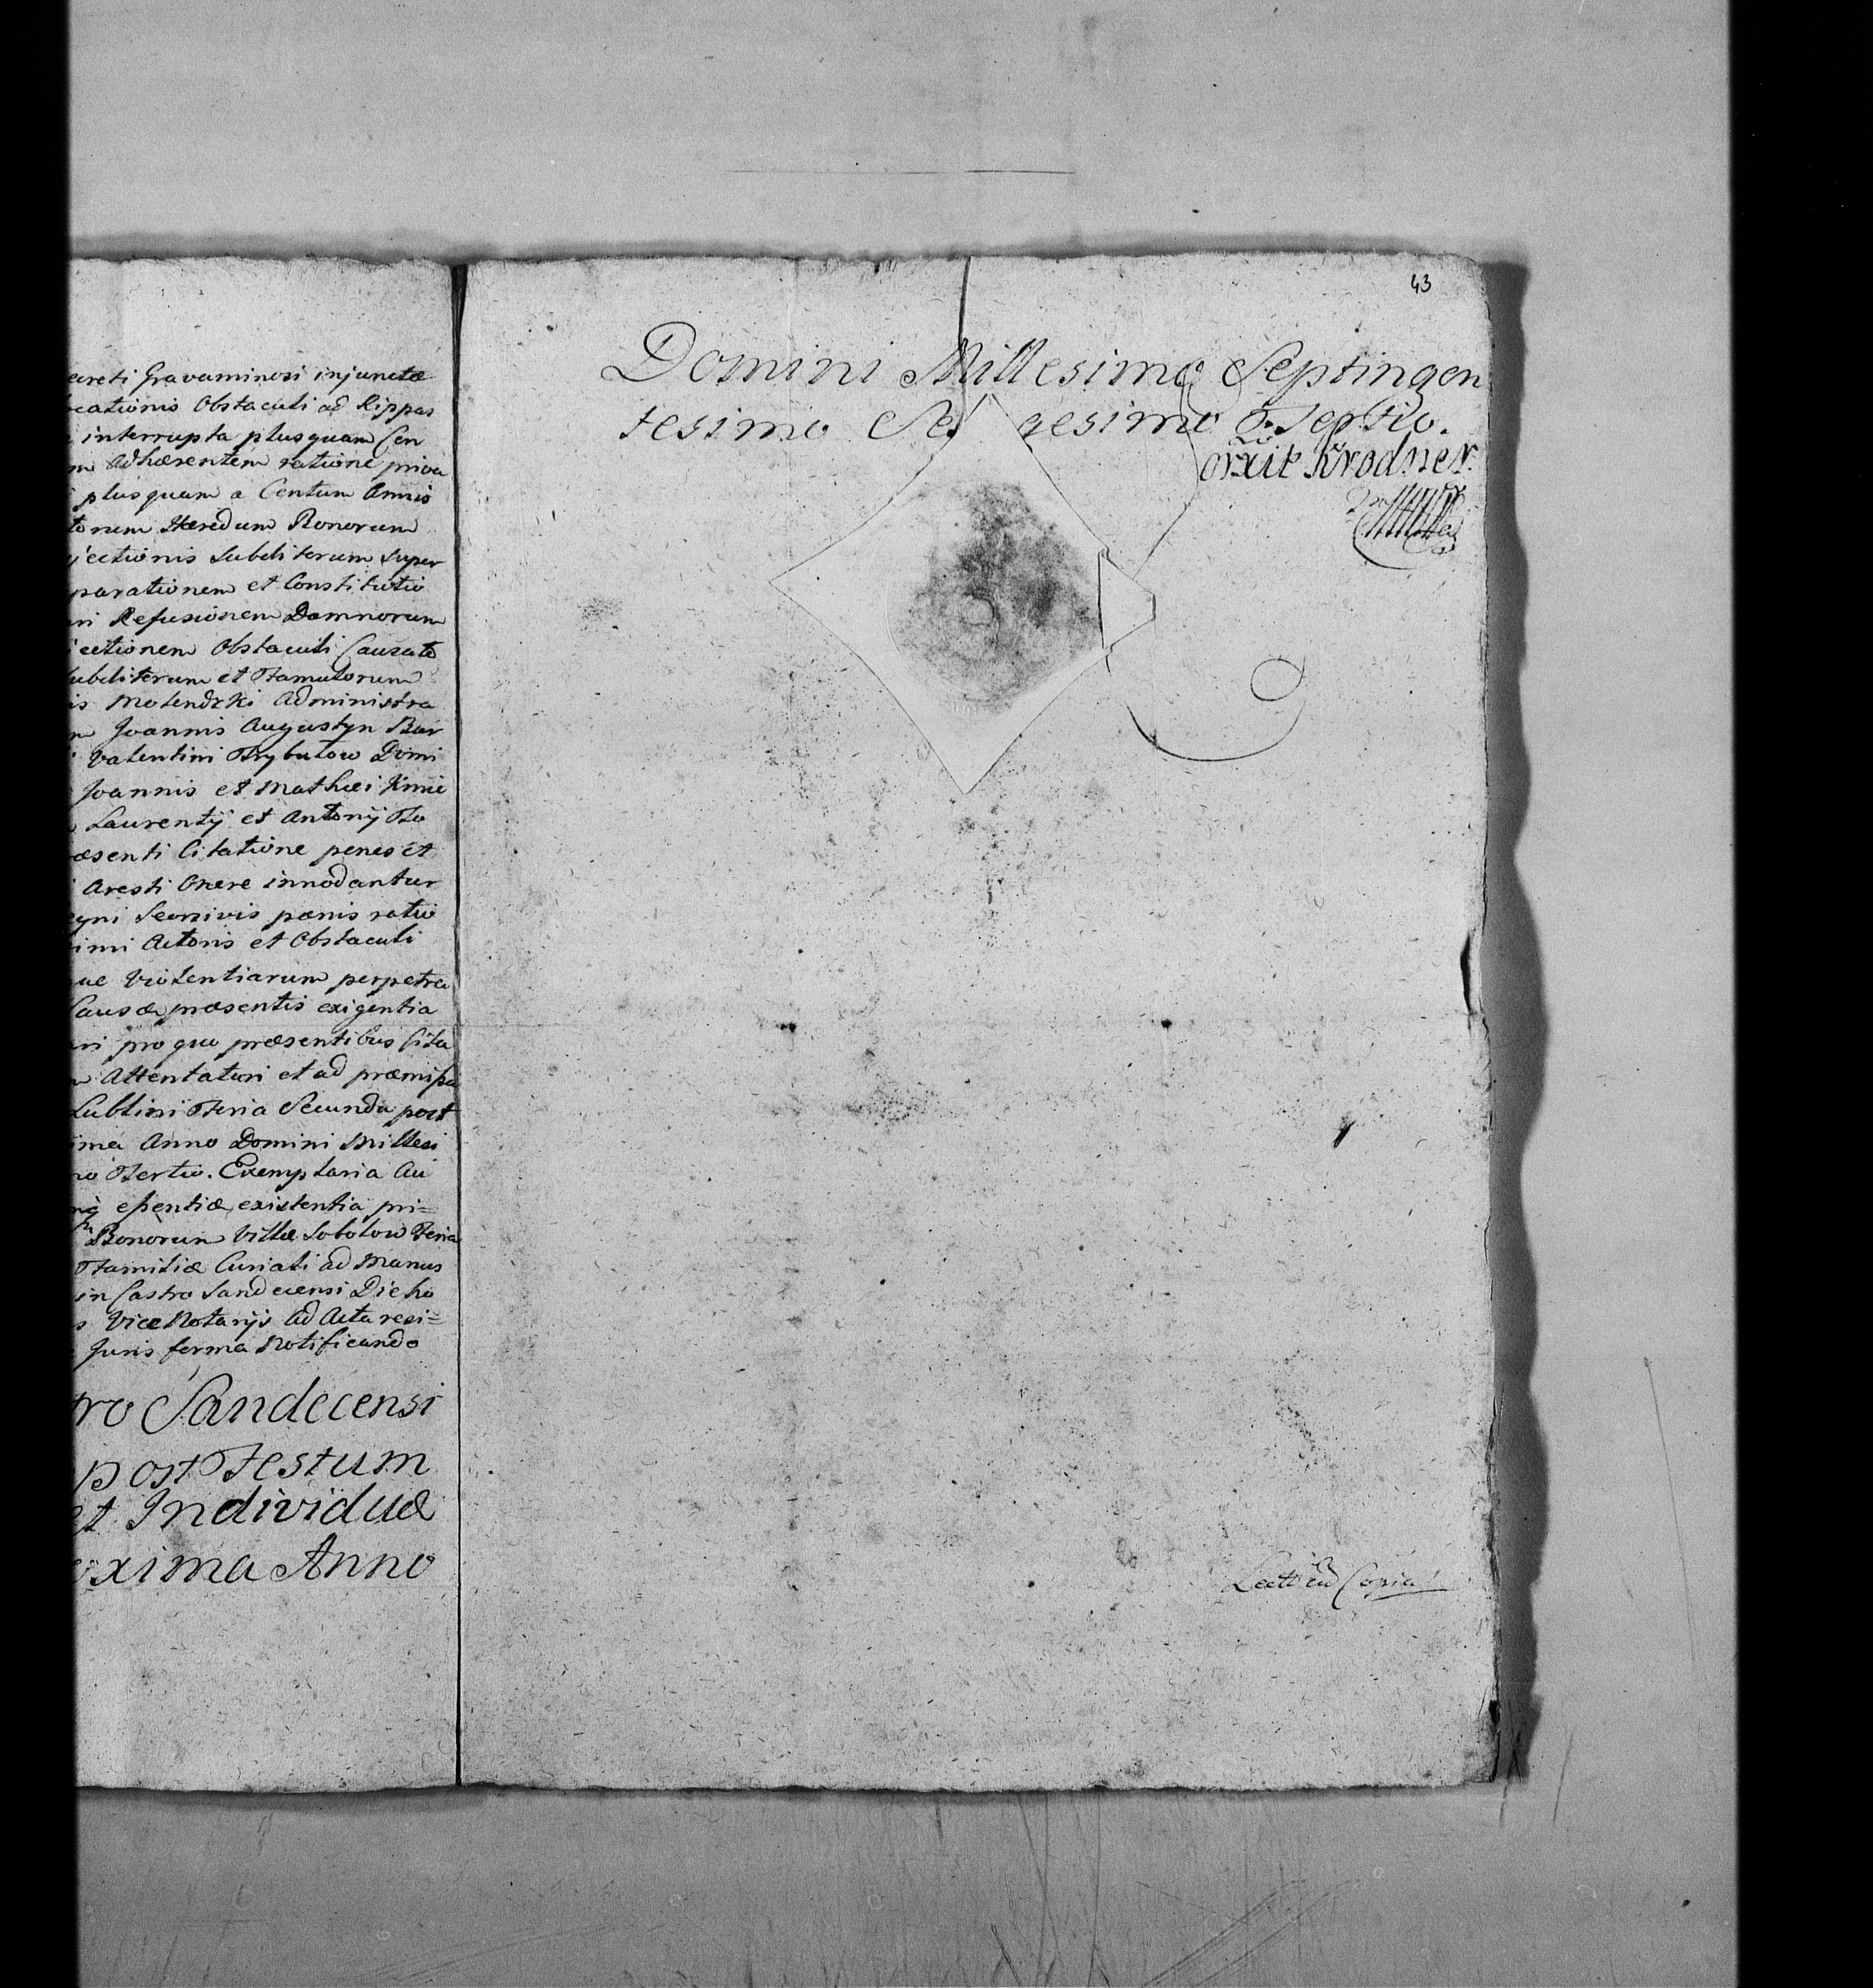 ecreti Gravaminosi injunctæ
cationis Obstaculi ad Rippas
interrupta plusquam Cen
m adhærentem ratione priva
plusquam a Centum Annis
torum Hæredum Bonorum
jectionis Subditorum super
parationem et Constitutio
ri Refusionem Damnorum
jectionem Obstaculi Causato
ubditorum et Famulorum
is Molendzki Administra
n Joannis Augustyn Bar
Valentini Trybulow Domi
Joannis et Mathæi Kmie
Laurentij et Antonij To
æsenti Citatione penes et
Aresti Onere innodantur
egni pænis ratio
imi Actoris et Obstaculi
ue Violentiarum perpetra
Causæ præsentis exigentia
ri pro quo præsentibus Cita
m Attentaturi et ad præmissa
Lublini Feria Secunda post
ima Anno Domini Millesi
no Tertio. Exemplaria Au
essentiæ existentia pri=
Bonorum Villæ Sobolow Feria
Familiæ Curiali ad Manus
in Castro Sandecensi Dicho
s ViceNotarijs ad Acta resi=
Juris forma Notificando
tro Sandecensi
post Festum
et Individuæ
oxima Anno
43
Domini Millesimo Septingen
tesimo Se gesimo Tertio.
Krodner.
Lect cū Copia